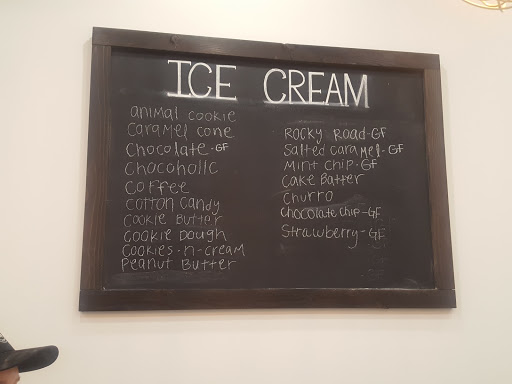 ICE CREAM
ANIMAL COOKIE
CARAMEL CONE
CHOCOLATE-GF
CHOCOHOLIC
COFFEE
COTTON CANDY
COOKIE BUTTER
COOKIE DOUGH
COOKIES-N-CREAM
PEANUT BUTTER
ROCKY ROAD-GF
SALTED CARAMEL-GF
MINT CHIP-GF
CAKE BATTER
CHURRO
CHOCOLATE CHIP-GF
STRAWBERRY-GF